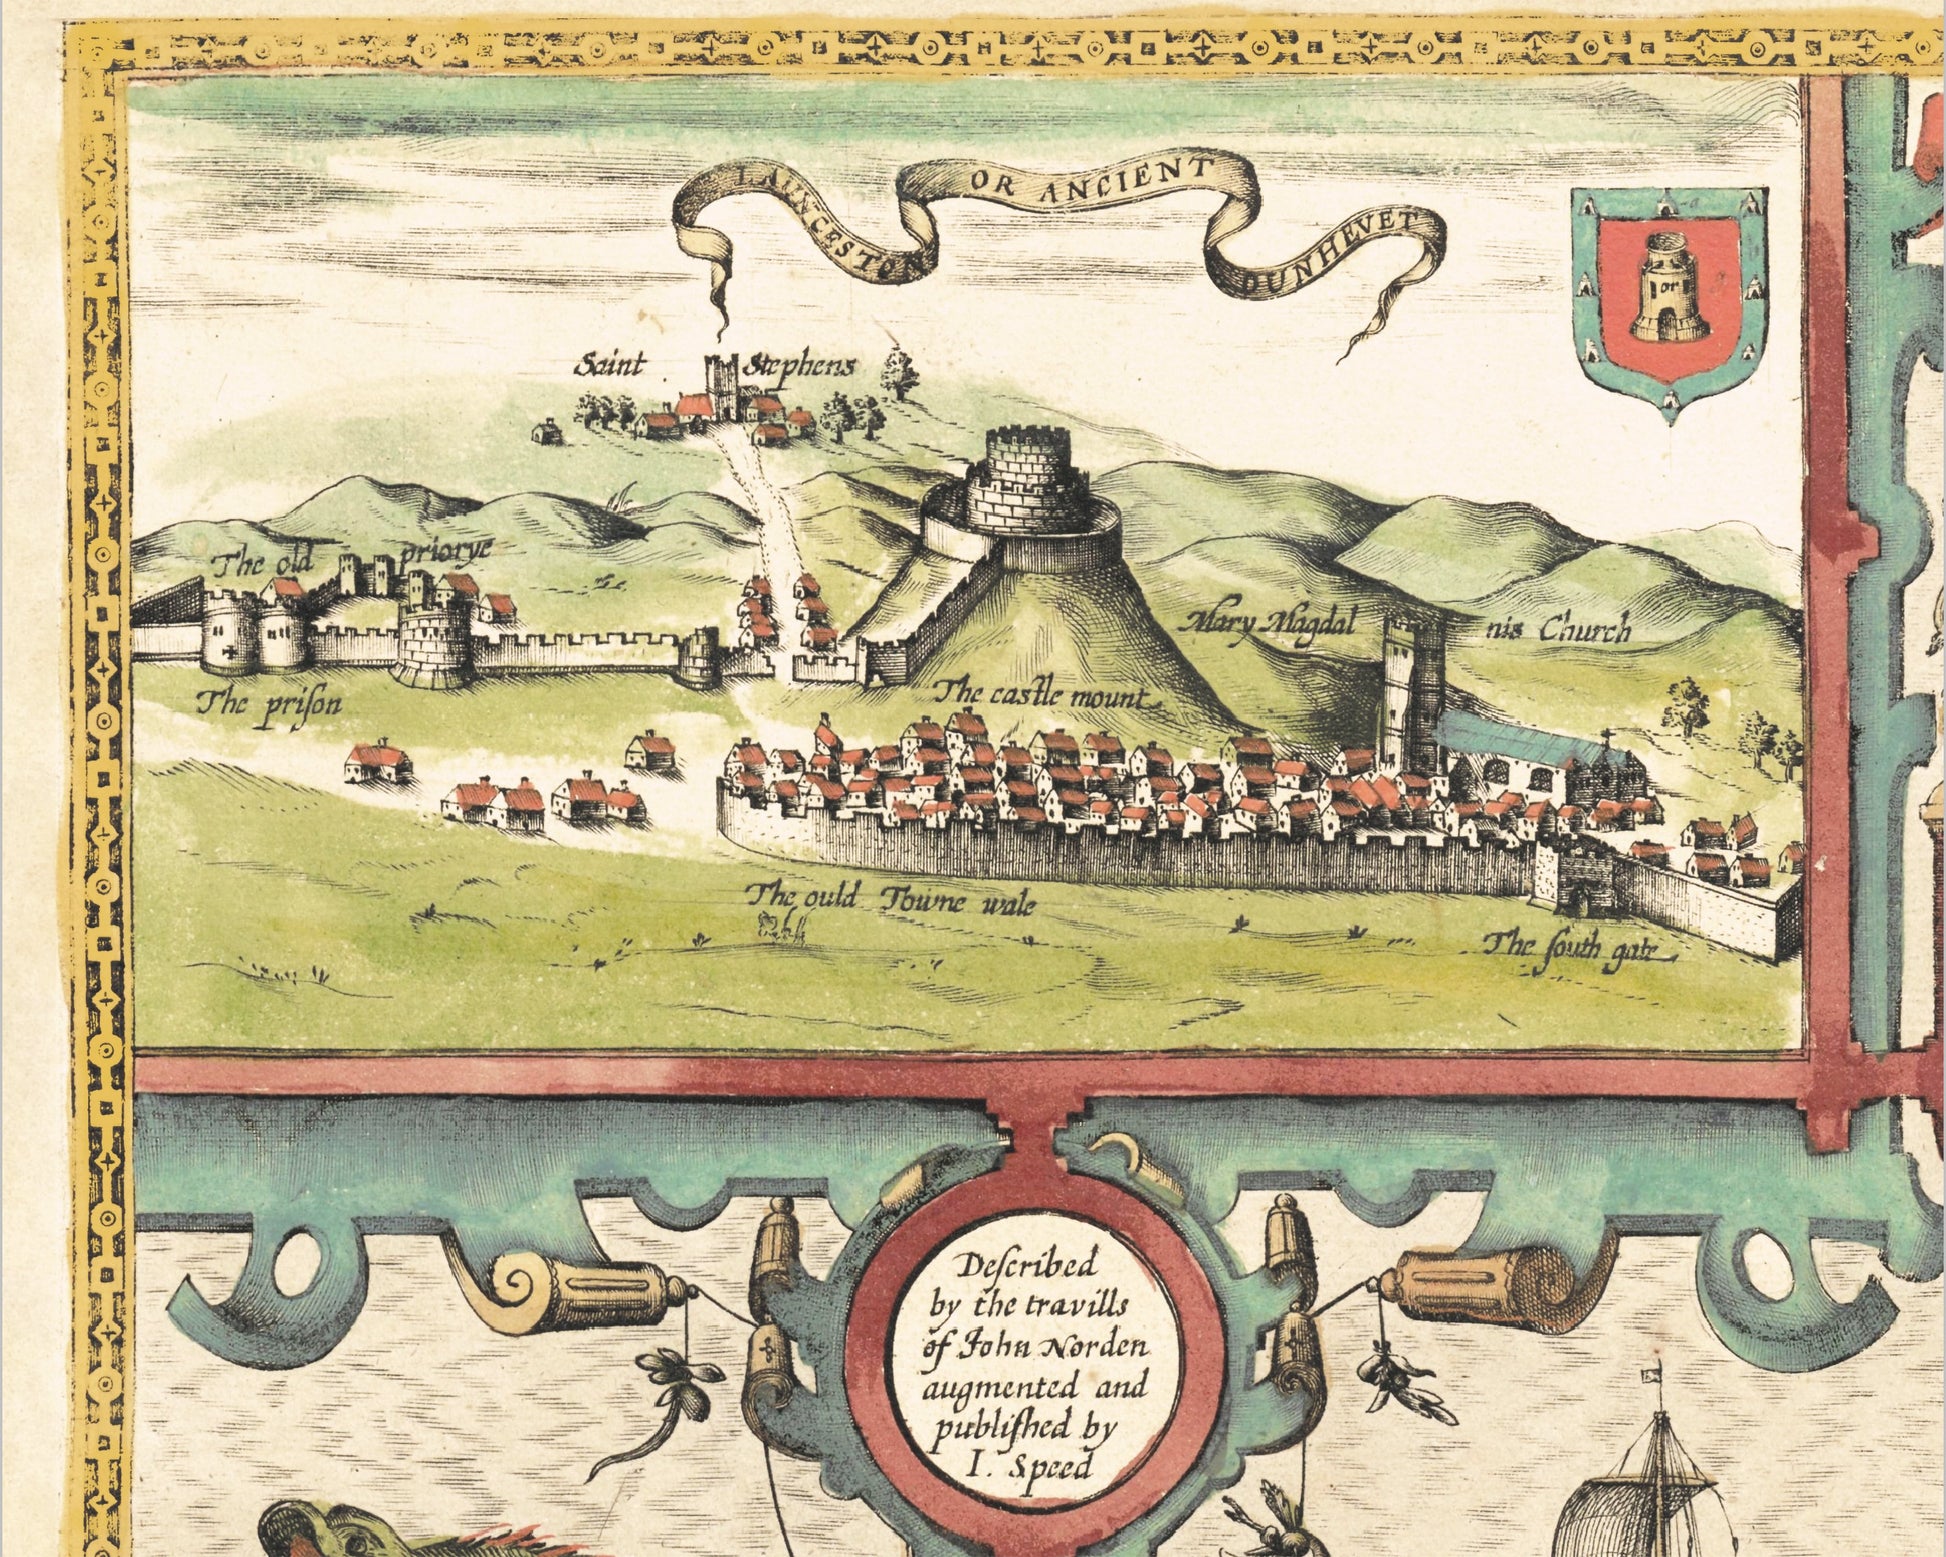 LAUNCESTON OR ANCIENT DUNHEVET
or
Saint Stephens
The old priorye
Mary Magdal nis Church
The priſon
The castle mount
The ould Towne wale
The ſouth gate
Deſcribed
by the travills
of Iohn Norden
augmented and
publiſhed by
I. Speed